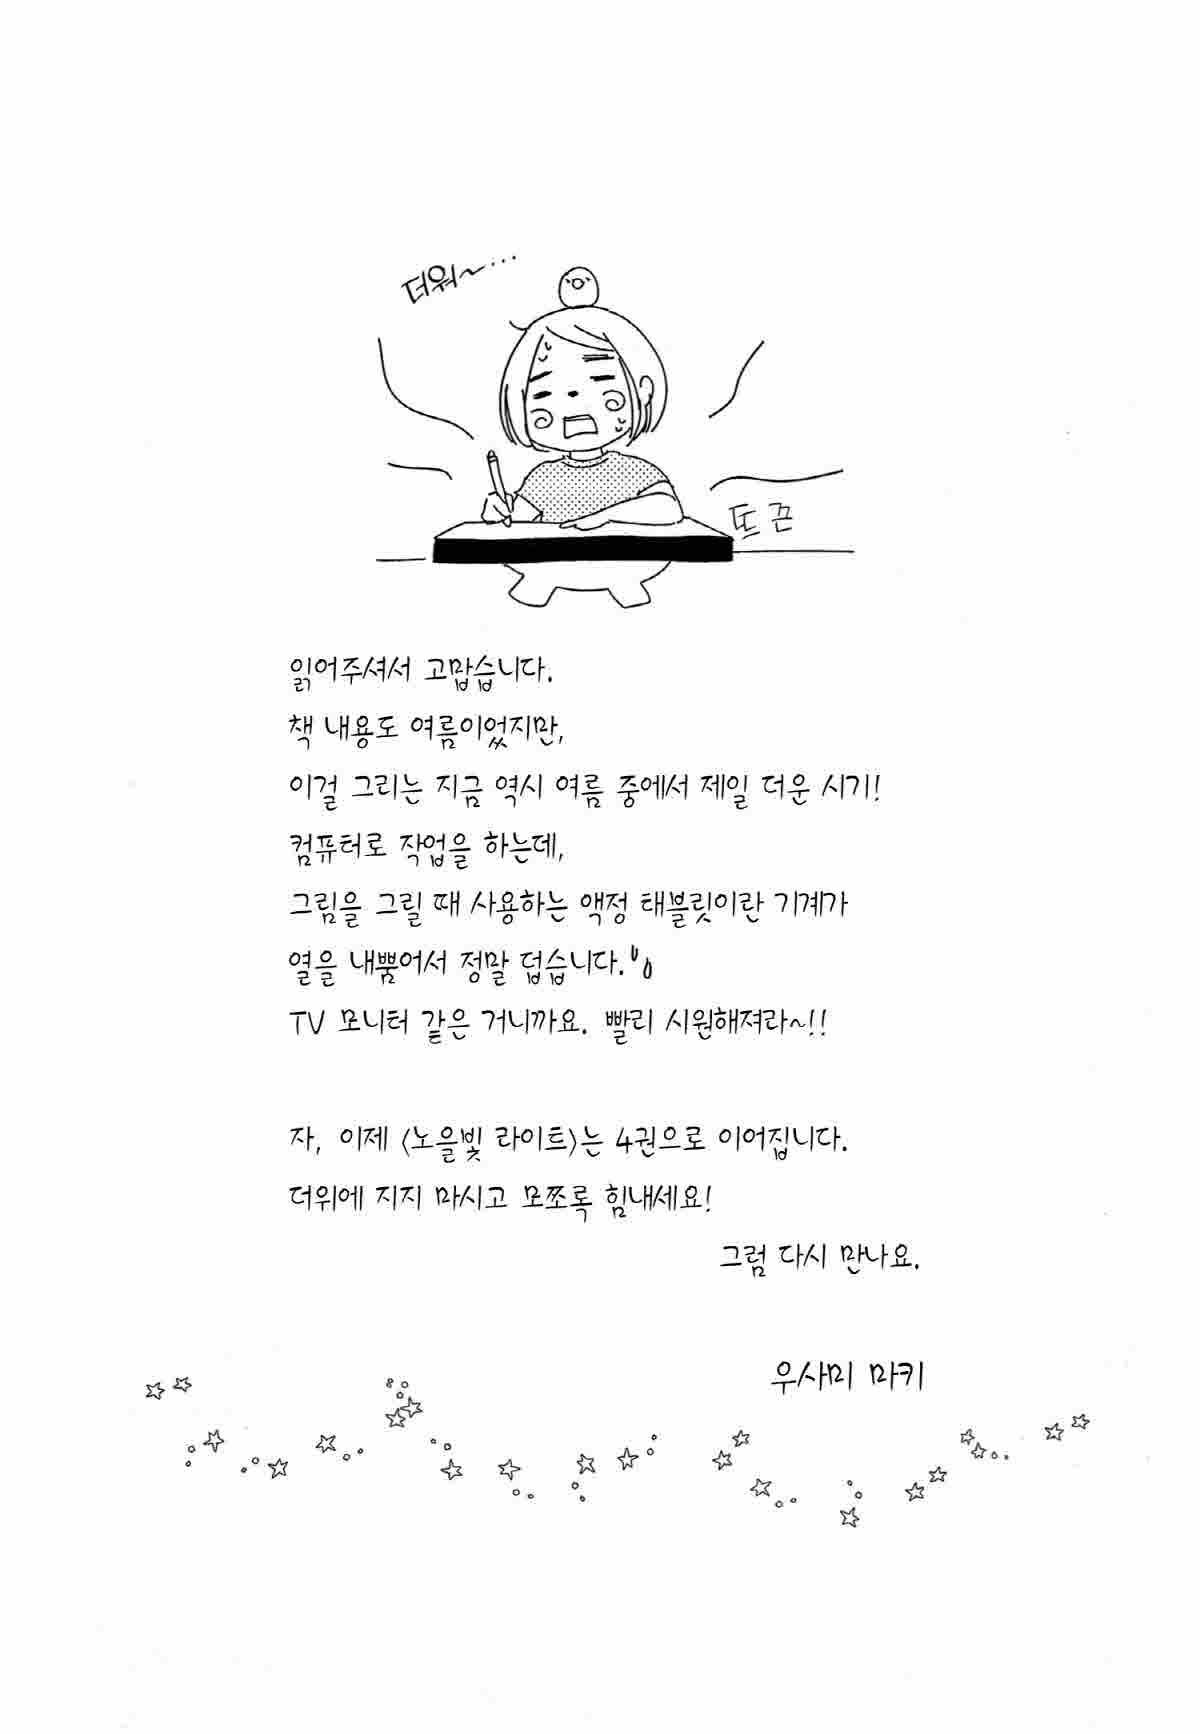 더워~...
또끈
읽어주셔서 고맙습니다.
책 내용도 여름이었지만,
이걸 그리는 지금 역시 여름 중에서 제일 더운 시기!
컴퓨터로 작업을 하는데,
그림을 그릴 때 사용하는 액정 태블릿이란 기계가
열을 내뿜어서 정말 덥습니다.
TV 모니터 같은 거니까요. 빨리 시원해져라~!!
자, 이제 〈노을빛 라이트〉는 4권으로 이어집니다.
더위에 지지 마시고 모쪼록 힘내세요!
그럼 다시 만나요.
우사미 마키